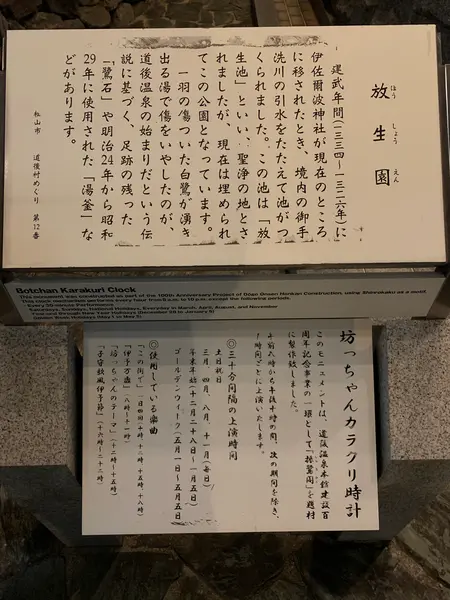 放生園
ほう しょう えん
建武年間(一三三四〜一三二六年)に
伊佐爾波神社が現在のところ
に移されたとき、境内の御手
洗川の引水をたたえて池がつ
くられました。この池は「放
生池」といい、聖浄の地とさ
れましたが、現在は埋められ
てこの公園となっています。
一羽の傷ついた白鷺が湧き
出る湯で傷をいやしたのが、
道後温泉の始まりだという伝
説に基づく、足跡の残った
「鷺石」や明治24年から昭和
29年に使用された「湯釜」な
どがあります。
松山市 道後村めぐり 第12番
Botchan Karakuri Clock
This monument was constructed as part of the 100th Anniversary Project of Dogo Onsen Honkan Construction, using Shinrokaku as a motif.
This clock mechanism performs every hour from 8 a.m. to 10 p.m. except the following periods.
Every 30-minute Performance
Saturdays, Sundays, National Holidays, Everyday in March, April, August, and November
Year-end through New Year Holidays (December 28 to January 5)
Golden Week Holidays (May 1 to May 5)
坊っちゃんカラクリ時計
このモニュメントは、道後温泉本館建設百
周年記念事業の一環として「振鷺閣」を題材
に製作致しました。
午前八時から午後十時の間、次の期間を除き、
1時間ごとに上演いたします。
◎三十分間隔の上演時間
土日祝日
三月、四月、八月、十一月(毎日)
年末年始 十二月二十八日〜一月五日
ゴールデンウィーク(五月一日〜五月五日)
◎使用している楽曲
「この街で」
「伊予万歳」(八時〜十一時)
「坊っちゃんのテーマ」(十二時〜十五時)
「子守歌風伊予節」(十六時〜二十二時)